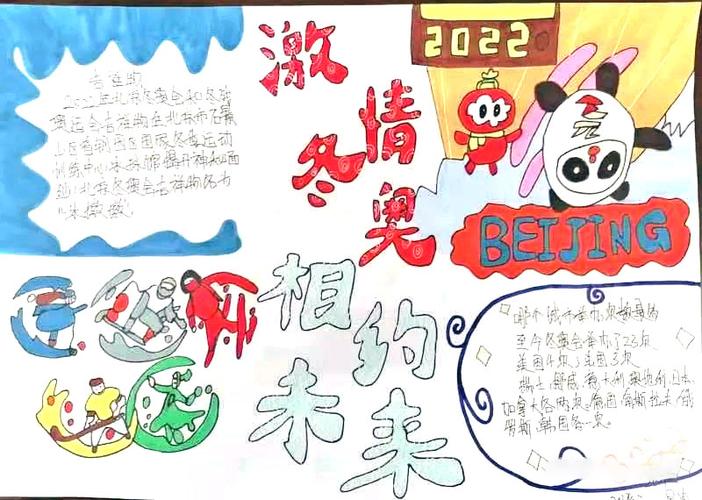 吉祥物
2022年北京冬奥会和冬残
奥运会吉祥物在北京市石景
山区首钢园区国家冬季运动
训练中心冰球馆揭开神秘面
纱北京冬奥会吉祥物名为
"冰墩墩"
激情
冬奥
相约
未来
2022
BEIJING
哪个城市举办次数最多
至今冬奥会举办了23次
美国4次，法国3次
瑞士、挪威、意大利、奥地利、日本、
加拿大各两次、德国、南斯拉夫、俄
罗斯、韩国各一次。